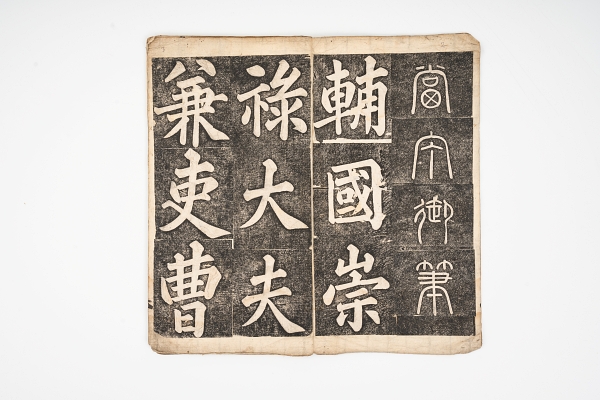 當宁御筆
輔國崇
祿大夫
兼吏曹